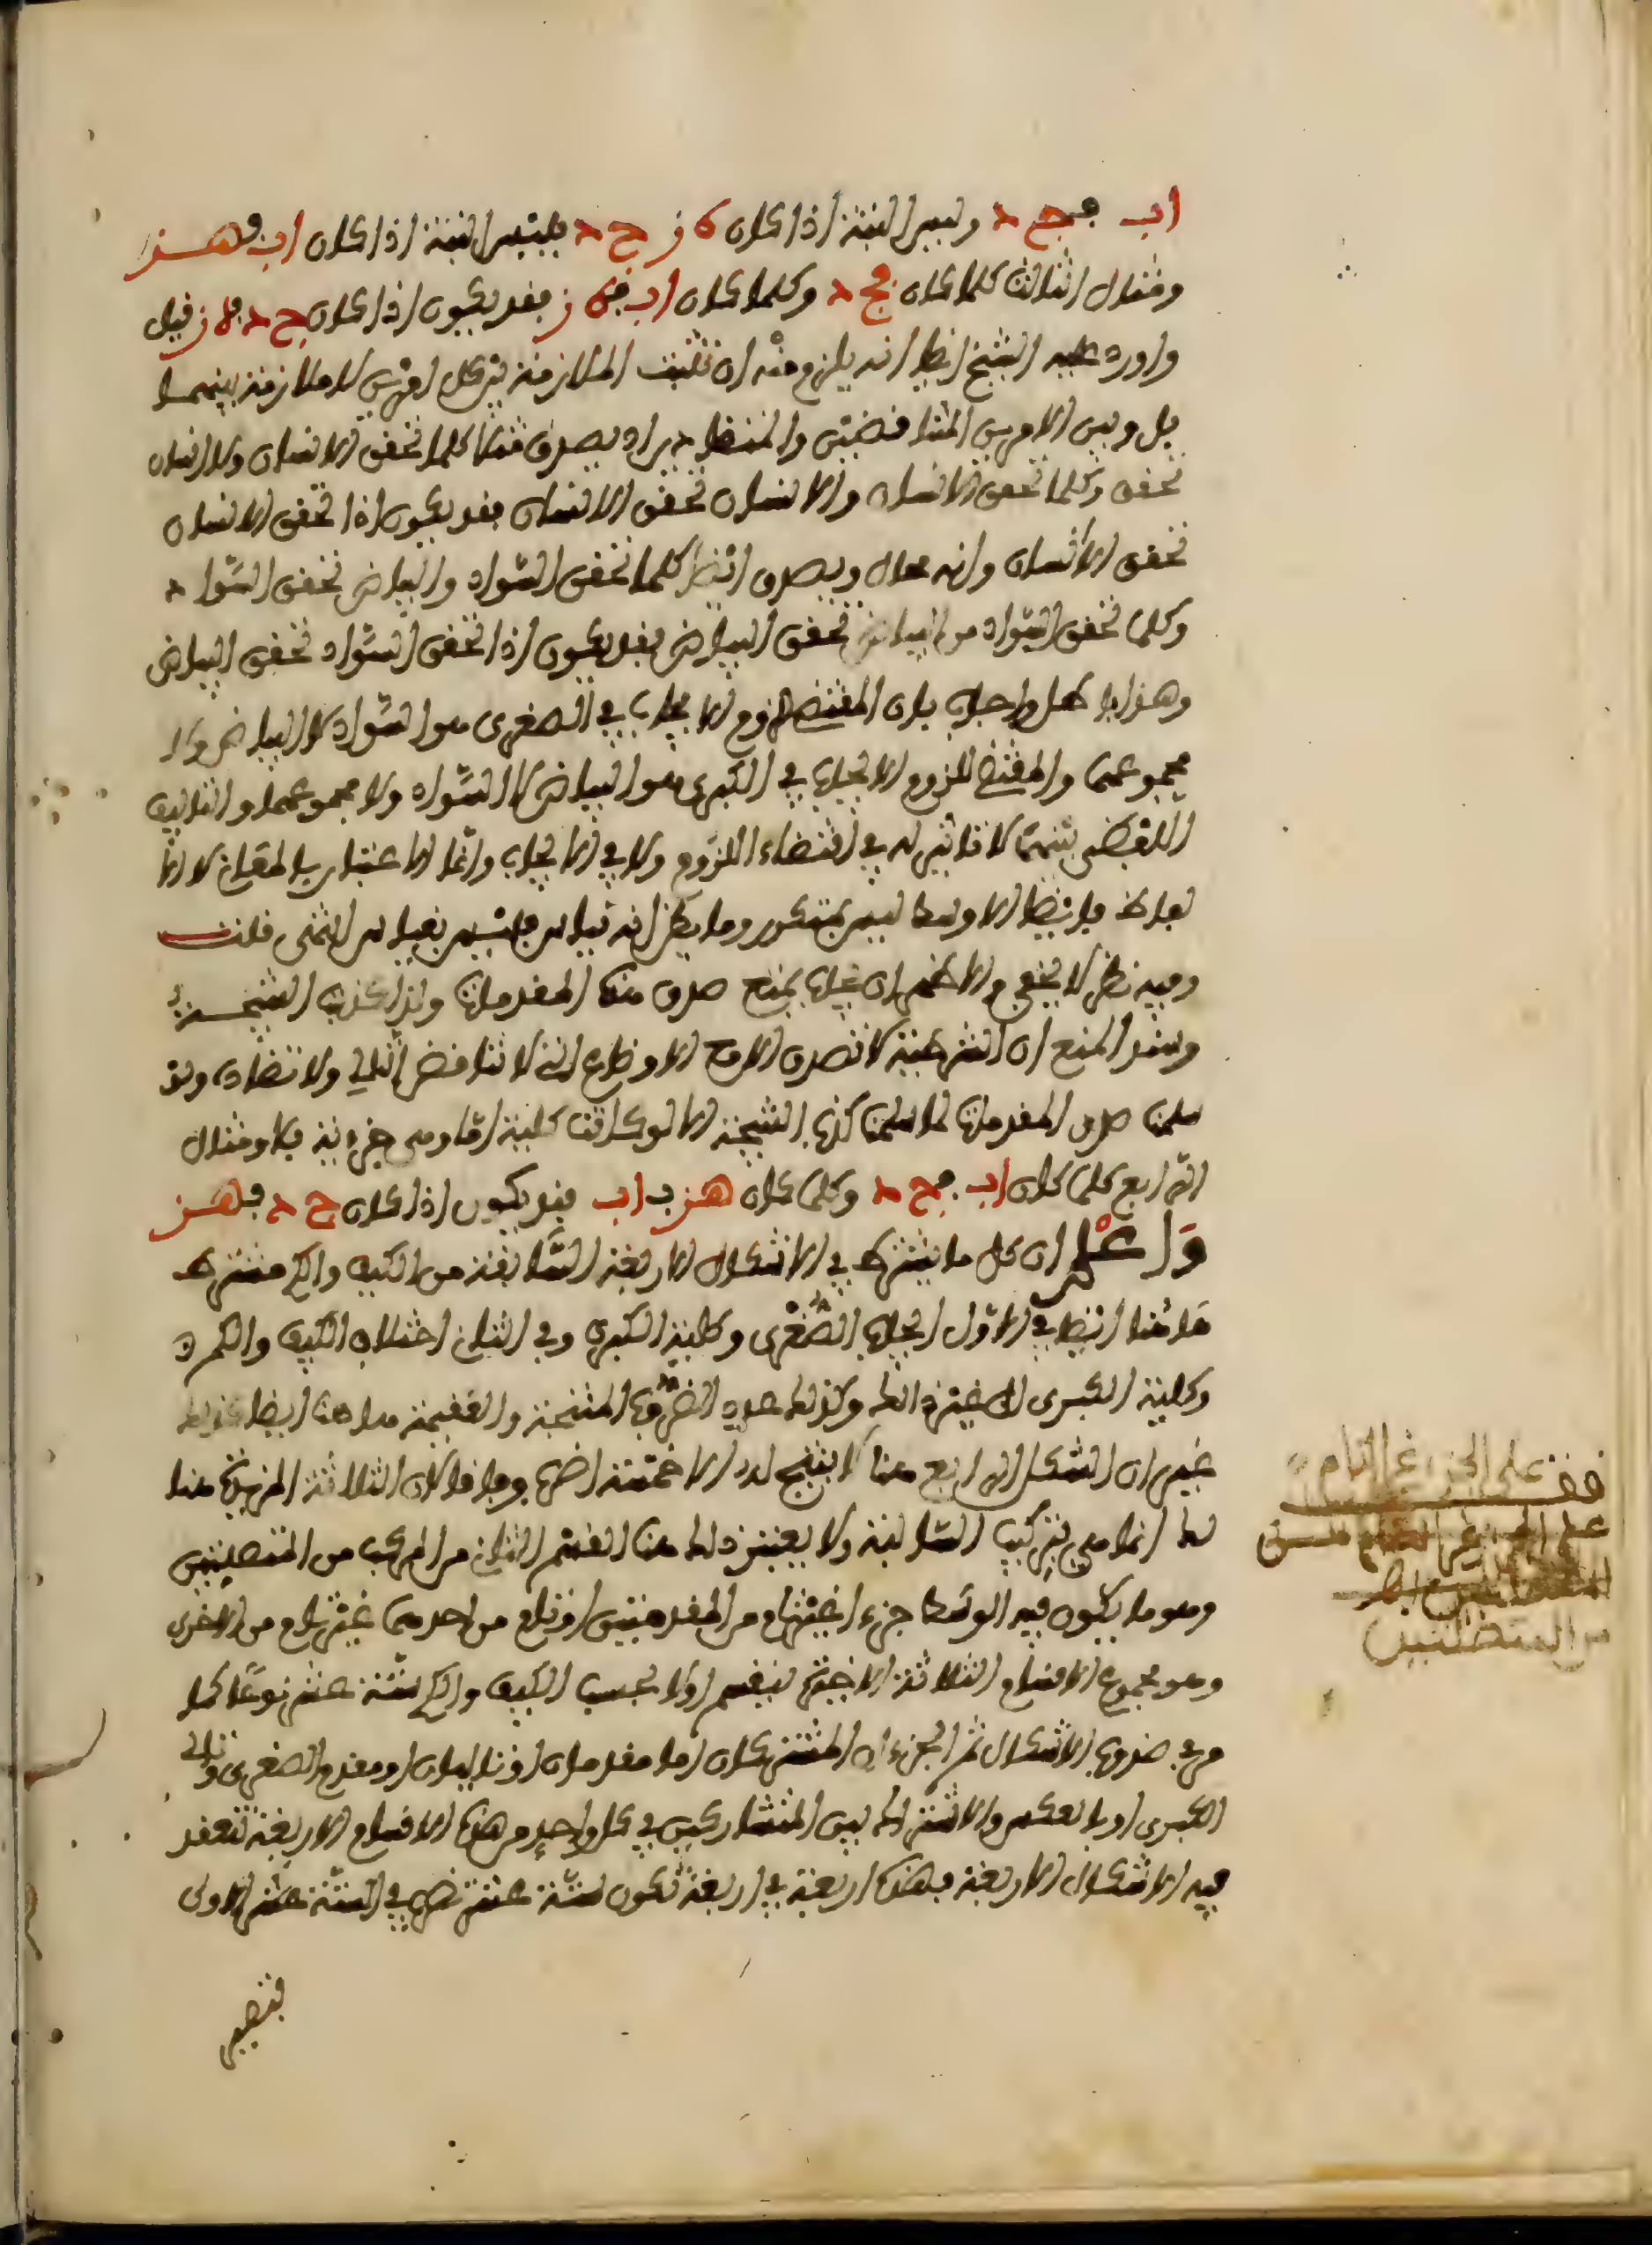 اب فجح د وليس البتة اذا كان ه ز ح د فليس البتة اذا كان اب فهز
ومثال الثالث كلما كان فجح د وكلما كان اب فه ز فقد يكون اذا كان ح د فه ز قيل
واورد عليه الشيخ ايضا انه يلزم منه ان تثبت الملازمة بين كل امرين لا ملازمة بينهما
بل وبين الامرين المتناقضين والمتضادين اد يصدق مثلا كلما تحقق الانسان ولا انسان
تحقق وكلما تحقق الانسان والا انسان تحقق الا انسان فقد يكون اذا تحقق الانسان
تحقق الا انسان وانه محال ويصدق ايضا كلما تحقق السواد والبياض تحقق السواد
وكلما تحقق السواد والبياض تحقق البياض فقد يكون اذا تحقق السواد تحقق البياض
وهذا باطل واجاب بان المقتضى للزوم الايجاب في الصغرى هو السواد لا البياض ولا
مجموعهما والمقتضى للزوم الايجاب في الكبرى هو البياض لا السواد ولا مجموعهما والتاليف
اللفظي بينهما لا تاثير له في اقتضاء اللزوم ولا في الايجاب وانما الاعتبار بالمعاني لا
بالالفاظ فايضا الاوسط ليس بمتكرر وما يظن انه قياس فليس بقياس انتهى قلت
وفيه نظر لا يخفى والاظهر ان يجاب بمنع صدق هذه المقدمات ولذا كذبت النتيجة
وسند المنع ان الشرطية لا تصدق الا مع الاوضاع التي لا تناقض التالي ولا تضاده ولو
سلمنا صدق المقدمات لما سلمنا كذب النتيجة الا لو كانت كلية اما وهي جزءية فلا ومثال
الرابع كلما كان اب فجح د وكلما كان هز ب اب فقد يكون اذا كان ح د فهز
وَاعْلم ان كل ما يشترط في الاشكال الاربعة السابقة من الكيف والكم مشترط
هاهنا ايضا في الاول ايجاب الصُّغْرى وكلية الكبرى وفي الثاني اختلاف الكيف والكم
وكلية الكبرى الى غير ذلك وكذلك عدد الضروب المنتجة والعقيمة هاهنا ايضا كذلك
غير ان الشكل الرابع هنا لا ينتج الا خمسة اضرب وما فاق كان الثلاثة المزيدة هنا
لك انما هي بتركيب السالبة ولا يعتبر ذلك هنا القسم الثاني من المركب من المتصلتين
وهو ما يكون فيه الوسط جزء اغير تام من المقدمتين او تام من احدهما غير تام من الاخرى
وهو مجموع الاقسام الثلاثة الاخيرة لينقسم اولا بحسب الكيف والكم ستة عشر نوعًا كما
مر في ضروب الاشكال ثم الجزءان المشتركان اما مقدمان او تاليان او مقدم الصغرى وتالي
الكبرى او بالعكس والاشتراك بين المتشاركين في كل واحد من هذه الاقسام الاربعة تنعقد
فيه الاشكال الاربعة فهذه اربعة في اربعة تكون ستة عشر تضرب في الستة عشر الاولى
فتصير
على الجزء غير التام
على الجزء غير التام
من المتصلتين